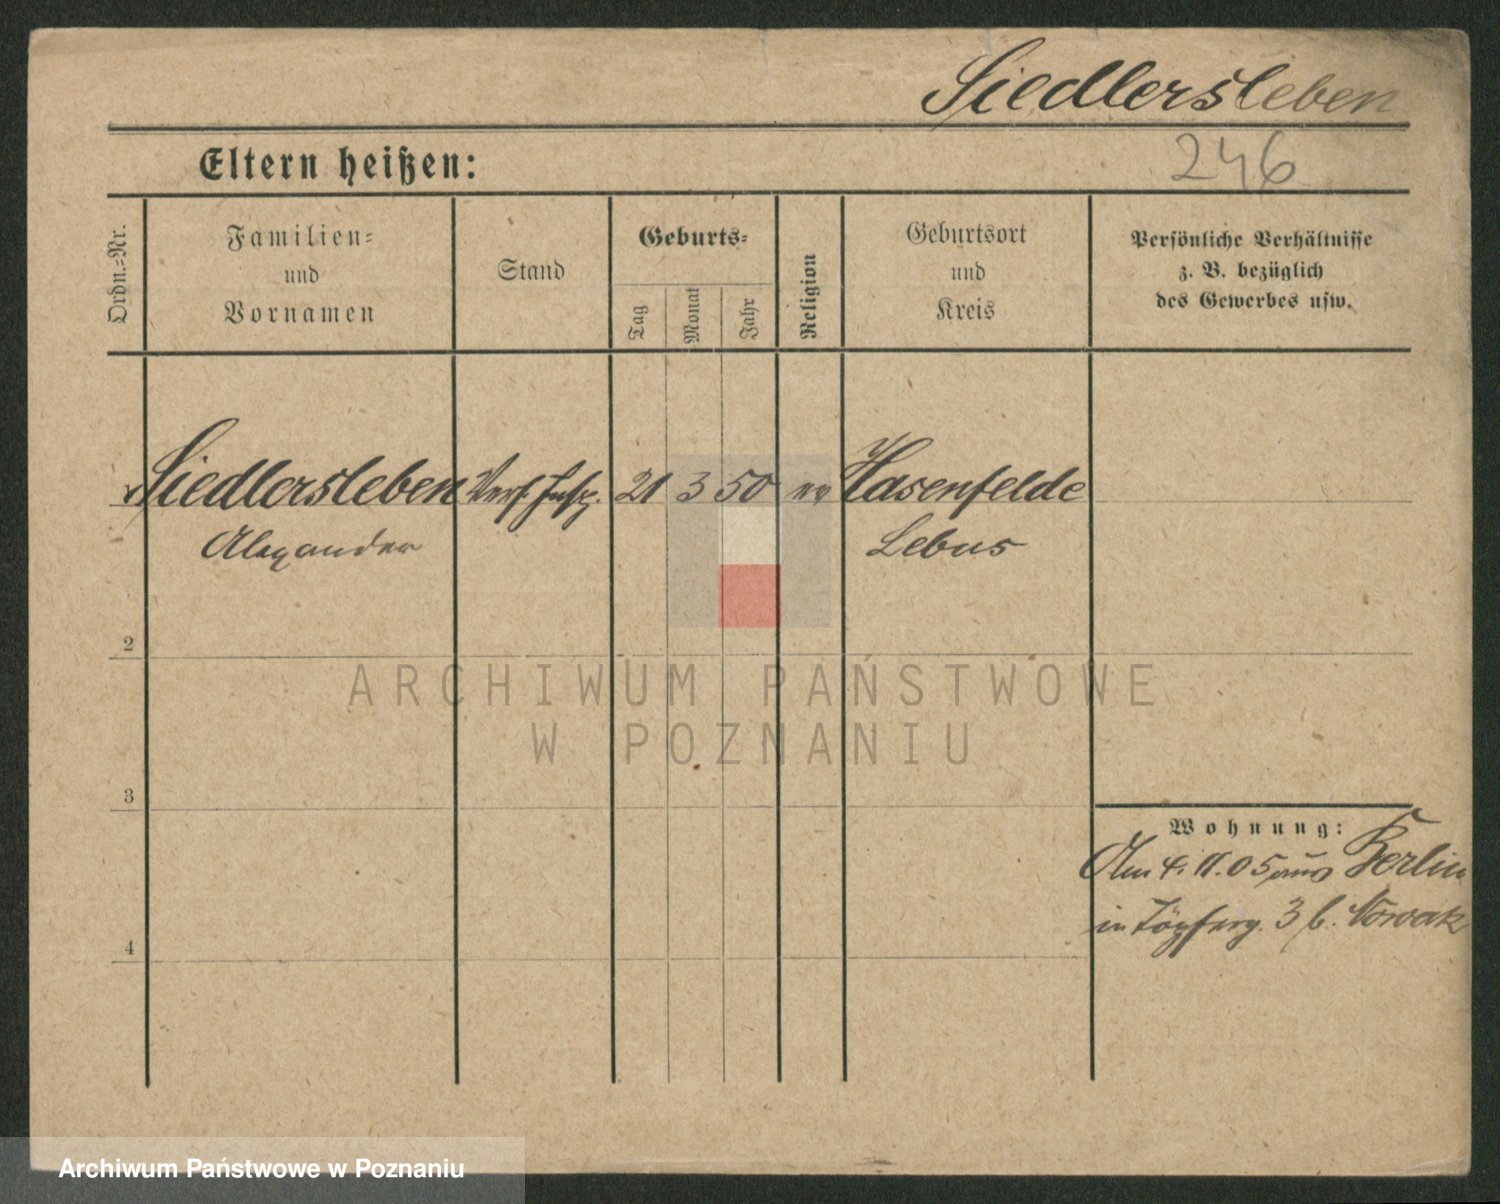 Siedlersleben
Eltern heißen:
246
Ordn.=Nr.
Familien=
und
Vornamen
Stand
Geburts=
Tag
Monat
Jahr
Religion
Geburtsort
und
Kreis
Persönliche Verhältnisse
z. B. bezüglich
des Gewerbes usw.
Siedlersleben Vers. Insp. 21 3 50 ev Hasenfelde
Alexander Lebus
2
ARCHIWUM PAŃSTWOWE
W POZNANIU
3
Wohnung:
Am 4. 11. 05 aus Berlin
in 3 b. Nowak
4
Archiwum Państwowe w Poznaniu